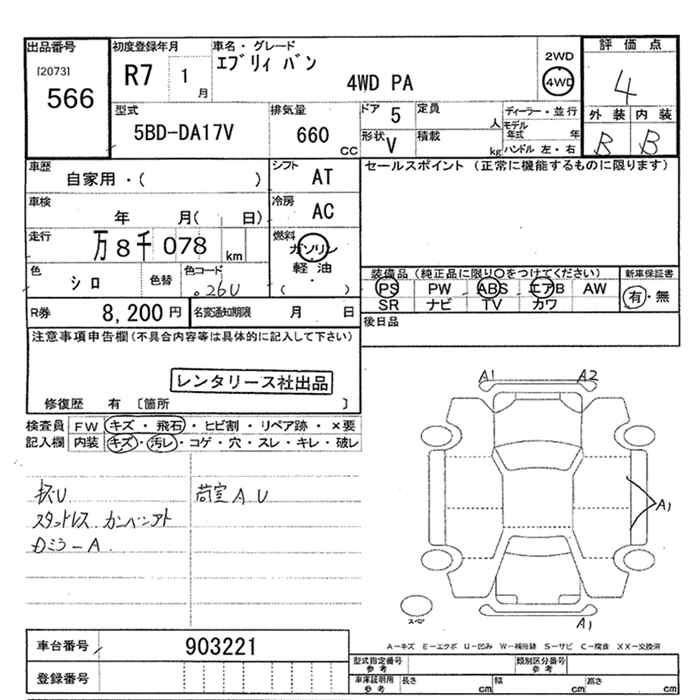 出品番号 [2073] 566
初度登録年月 R7 1月
車名・グレード エブリィ バン 4WD PA
2WD 4WD
評価点 4
外装 内装 B B
型式 5BD-DA17V
排気量 660 CC
ドア 5
形状 V
定員 人
積載 kg
ディーラー・並行
モデル年式 年
ハンドル 左・右
車歴 自家用・( )
シフト AT
車検 年 月( 日)
冷房 AC
走行 万8千078 km
燃料 ガソリン 軽油 ・ ( )
色 シロ 色替 色コード 26U
R券 8,200円 名変通知期限 月 日
セールスポイント (正常に機能するものに限ります)
装備品 (純正品に限り○をつけてください) 新車保証書
PS PW ABS エアB AW 有・無
SR ナビ TV カワ
後日品
注意事項申告欄(不具合内容等は具体的に記入して下さい)
レンタリース社出品
修復歴 有 [箇所 ]
検査員 FW キズ・飛石・ヒビ割・リペア跡・×要
記入欄 内装 キズ・汚レ・コゲ・穴・スレ・キレ・破レ
荷室A U
スタットレス
Dミラ-A
A1 A2
A1
A1
スペア
A-キズ E-エクボ U-凹み W-補修跡 S-サビ C-腐食 XX-交換済
車台番号 903221
登録番号
型式指定番号 参考 類別区分番号 参考
車庫証明用 参考 長さ cm 幅 cm 高さ cm